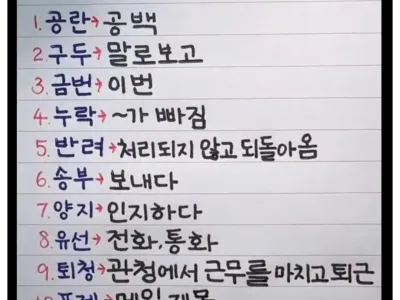 1. 공란→공백
2. 구두→말로보고
3. 금번→이번
4. 누락→~가 빠짐
5. 반려→처리되지 않고 되돌아옴
6. 송부→보내다
7. 양지→인지하다
8. 유선→전화,통화
9. 퇴청→관청에서 근무를 마치고 퇴근